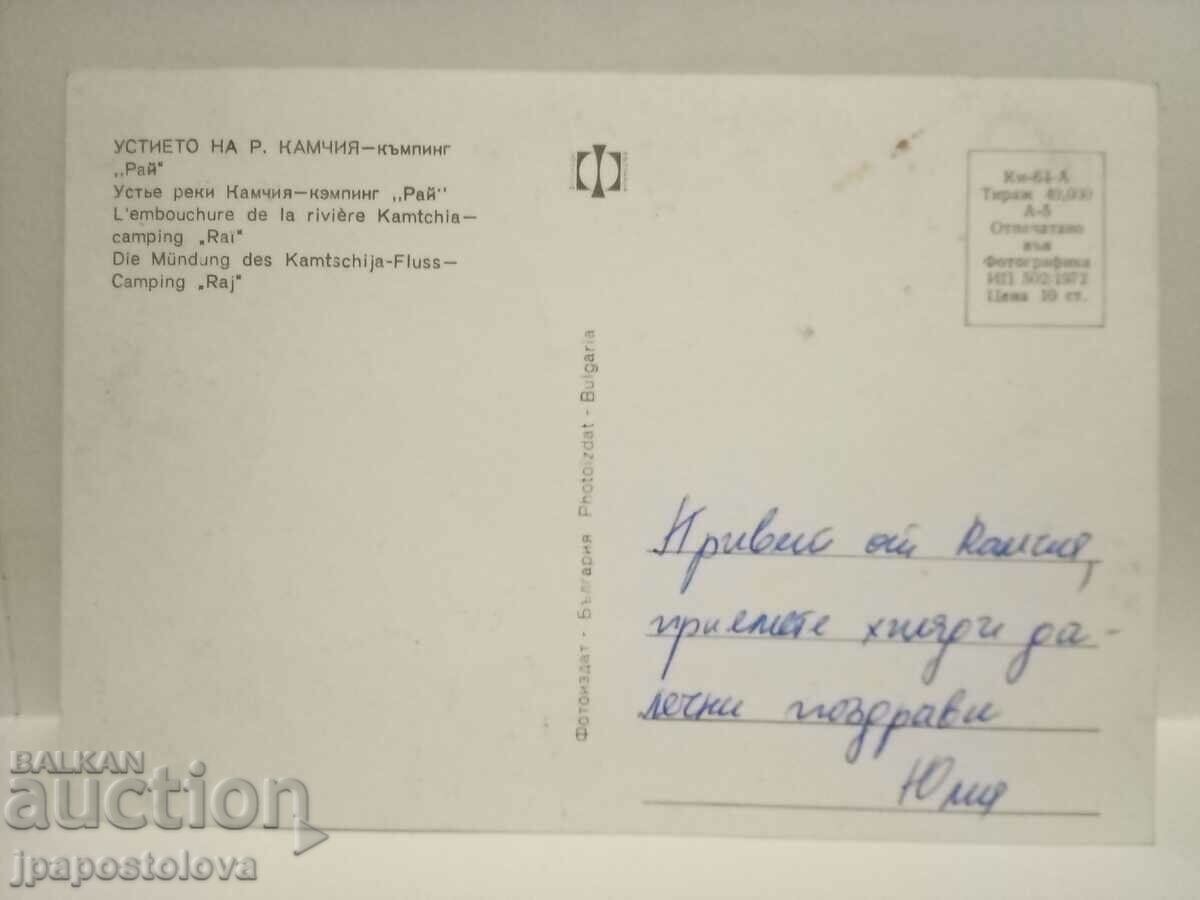 УСТИЕТО НА Р. КАМЧИЯ—къмпинг
„Рай"
Устье реки Камчия—кэмпинг „Рай"
L'embouchure de la rivière Kamtchia—
camping „Raï"
Die Mündung des Kamtschija-Fluss—
Camping „Raj"
Фотоиздат - България Photoizdat - Bulgaria
Ки-64-А
Тираж 40,000
А-5
Отпечатано
във
Фотографика
ИП. 502/1972
Цена 10 ст.
Привет от Камчия,
приемете хиляди да-
лечни поздрави
Юлия
BALKAN
auction
jpapostolova